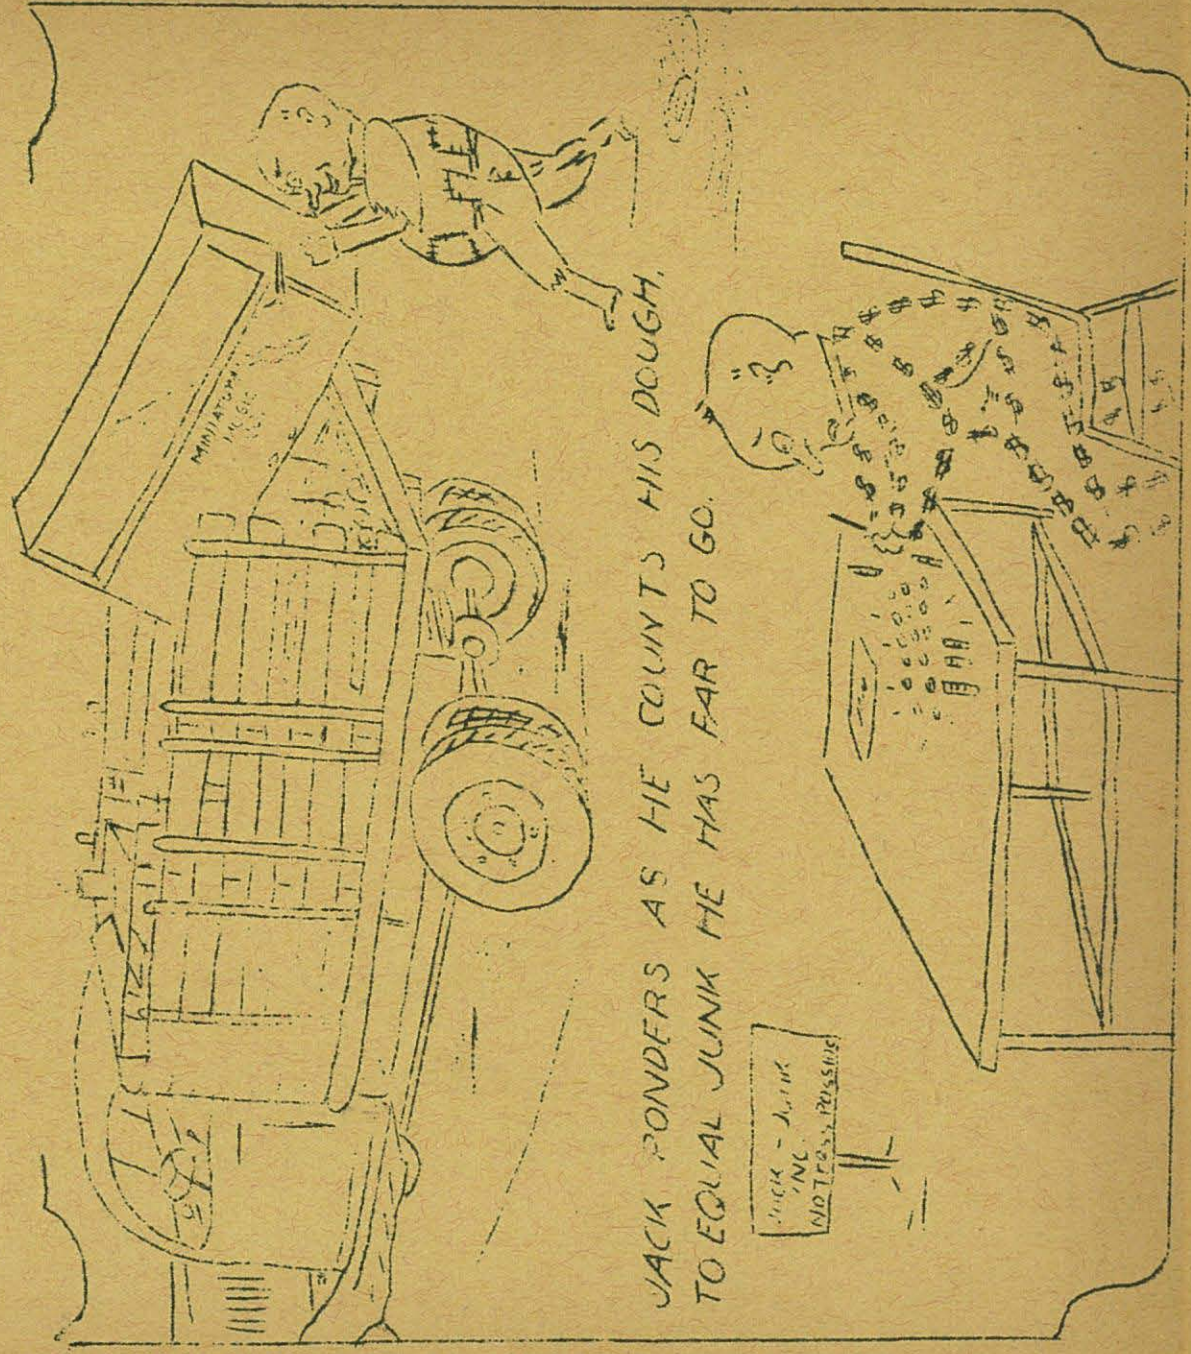 MINIATURE
LOGIC
JACK PONDERS AS HE COUNTS HIS DOUGH,
TO EQUAL JUNK HE HAS FAR TO GO.
JACK - JUNK
INC.
NO TresPASSING